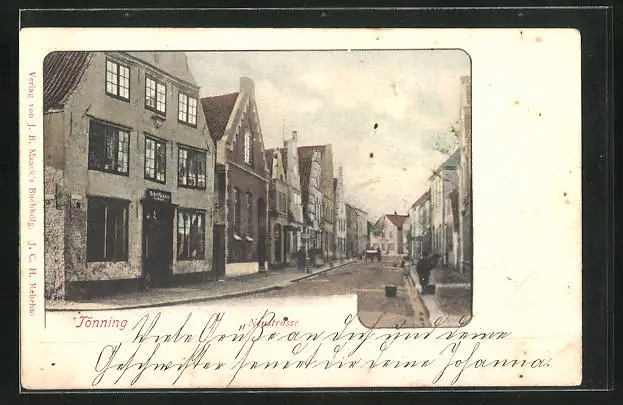 Verlag von J. B. Maack's Buchhdlg. J. C. H. Rebehn
Tönning
Neustrasse
Viele Grüße an dich und deine
Geschwister sendet dir deine Johanna.